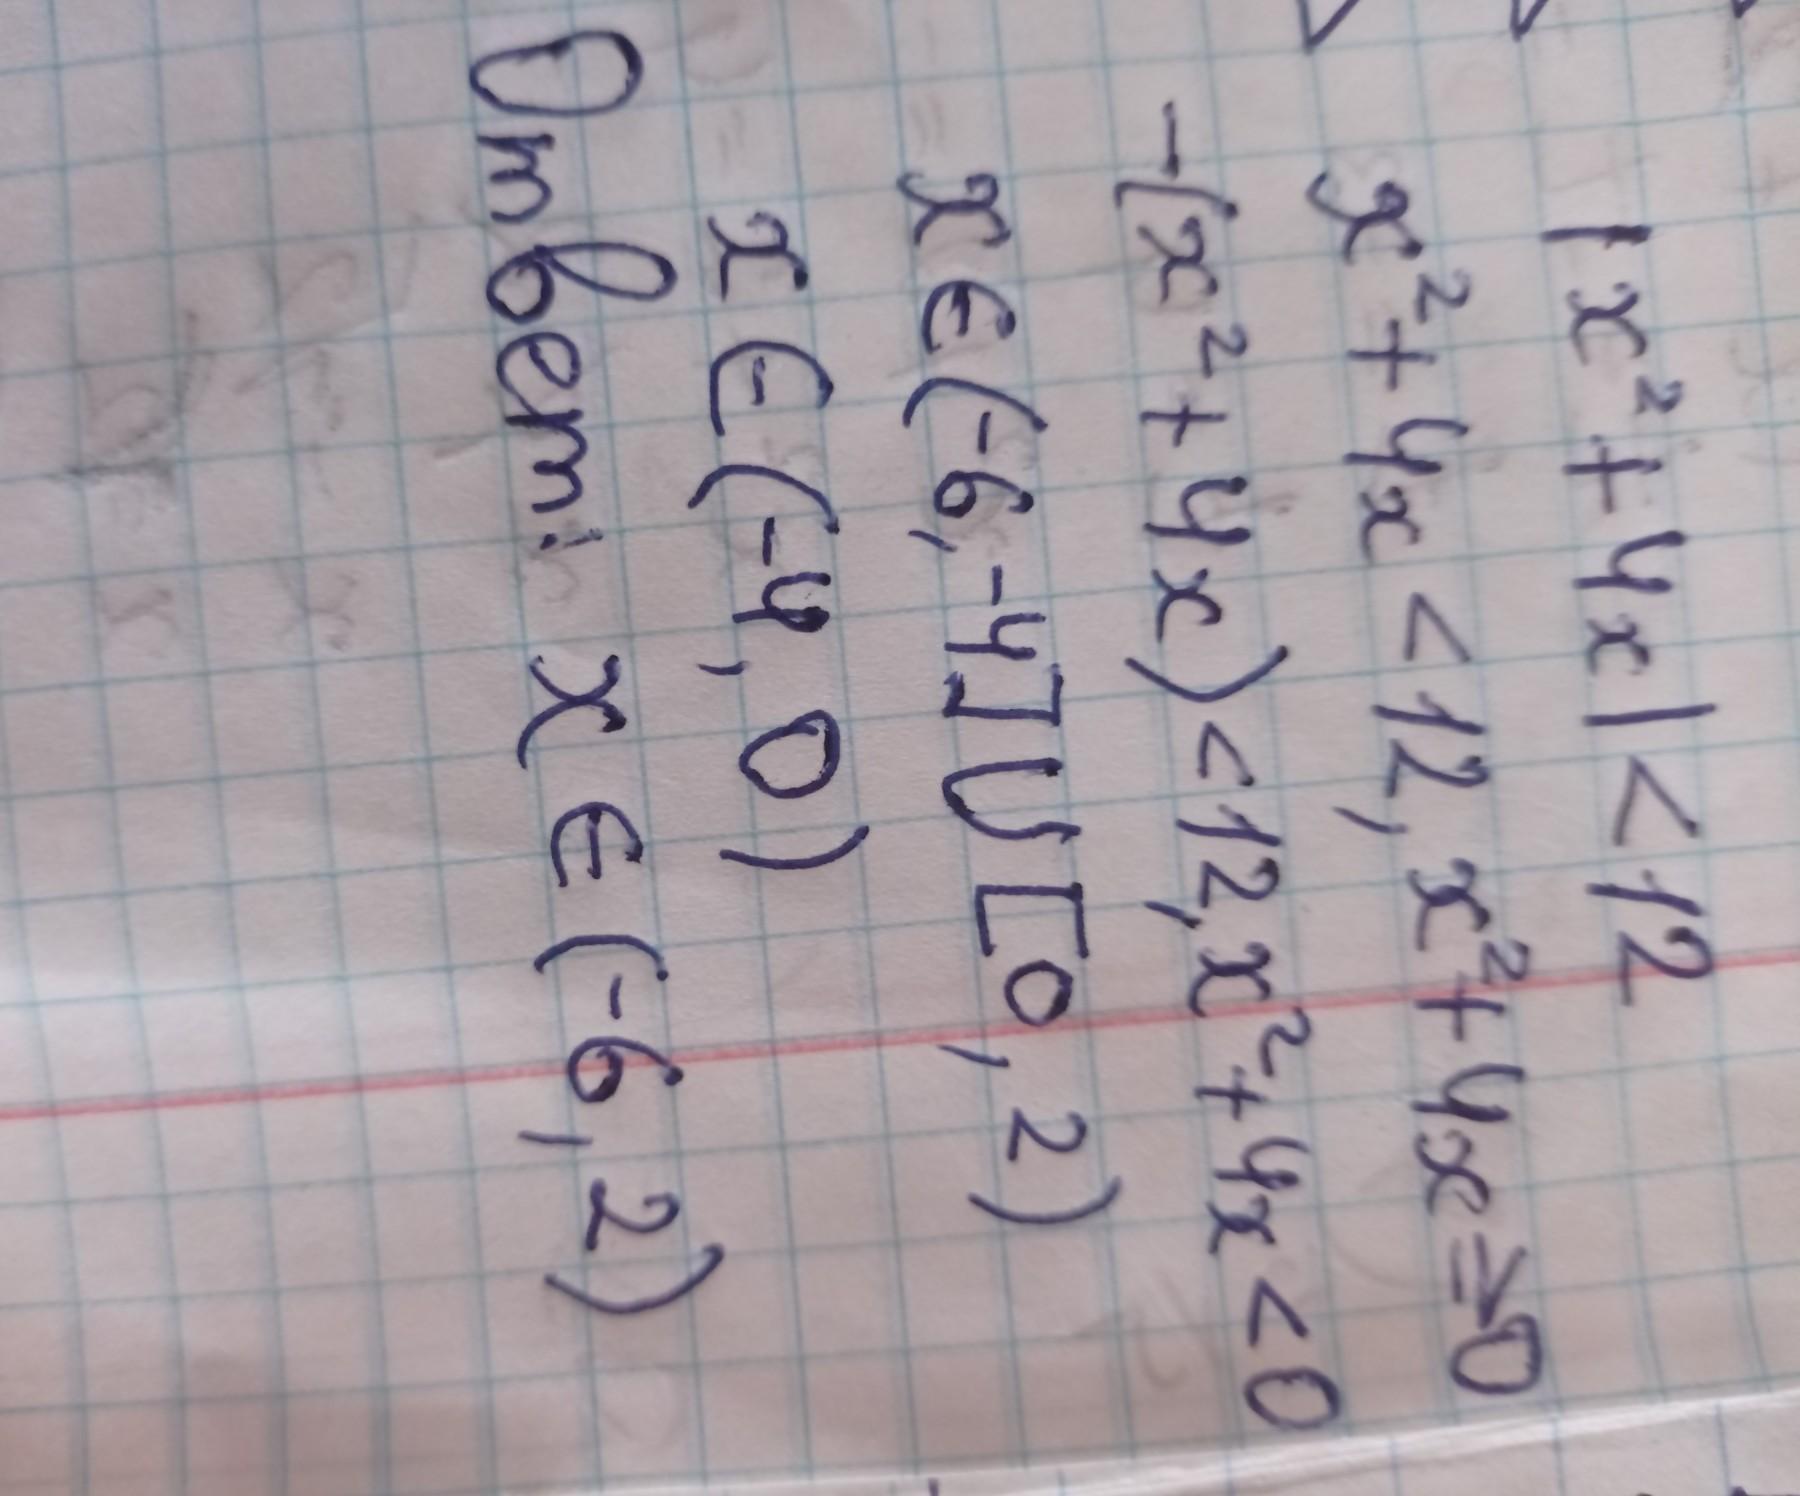 |x²+4x|<12
x²+4x<12, x²+4x≥0
-(x²+4x)<12, x²+4x<0
x∈(-6,-4]∪[0,2)
x∈(-4,0)
Ответ: x∈(-6,2)